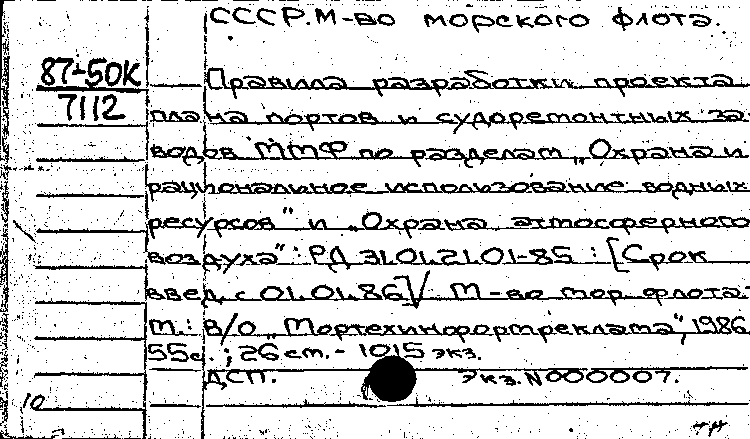 СССР. М-во морского флота.
87-50К
7112
Правила разработки проекта
плана портов и судоремонтных за-
водов ММФ по разделам „Охрана и
рациональное использование водных
ресурсов" и „Охрана атмосферного
воздуха": РД 31.01.21.01-85 : [Срок
введ. с 01.01.86] / М-во мор. флота. -
М.: В/О „Мортехинформреклама", 1986
55с. ; 26 см. - 1015 экз.
ДСП. Экз. N 000007.
10